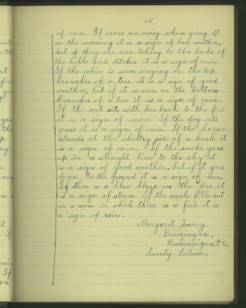 of rain. If crows are very when going up
in the morning it is a sign of bad weather,
but if they are seen taking to the banks of
the hills and ditches it is a sign of rain.
If the robin is seen singing on the top
branches of a tree it is a sign of good
weather, but if it is seen on the bottom
branches of a tree it is a sign of rain.
If the cat sits with her back to the fire
it is a sign of rain. If the dog eats
grass it is a sign of rain. If the horse
stands at the sheltry side of a bush it
is a sign of rain. If the smoke goes
up in "a straight line" to the sky it
is a sign of good weather, but if it goes
down to the ground it is a sign of rain.
If there is a blue blaze in the fire it
is a sign of storm. If the smoke fills out
in a room in which there is a fire it is
a sign of rain.
Margaret
County Leitrim.